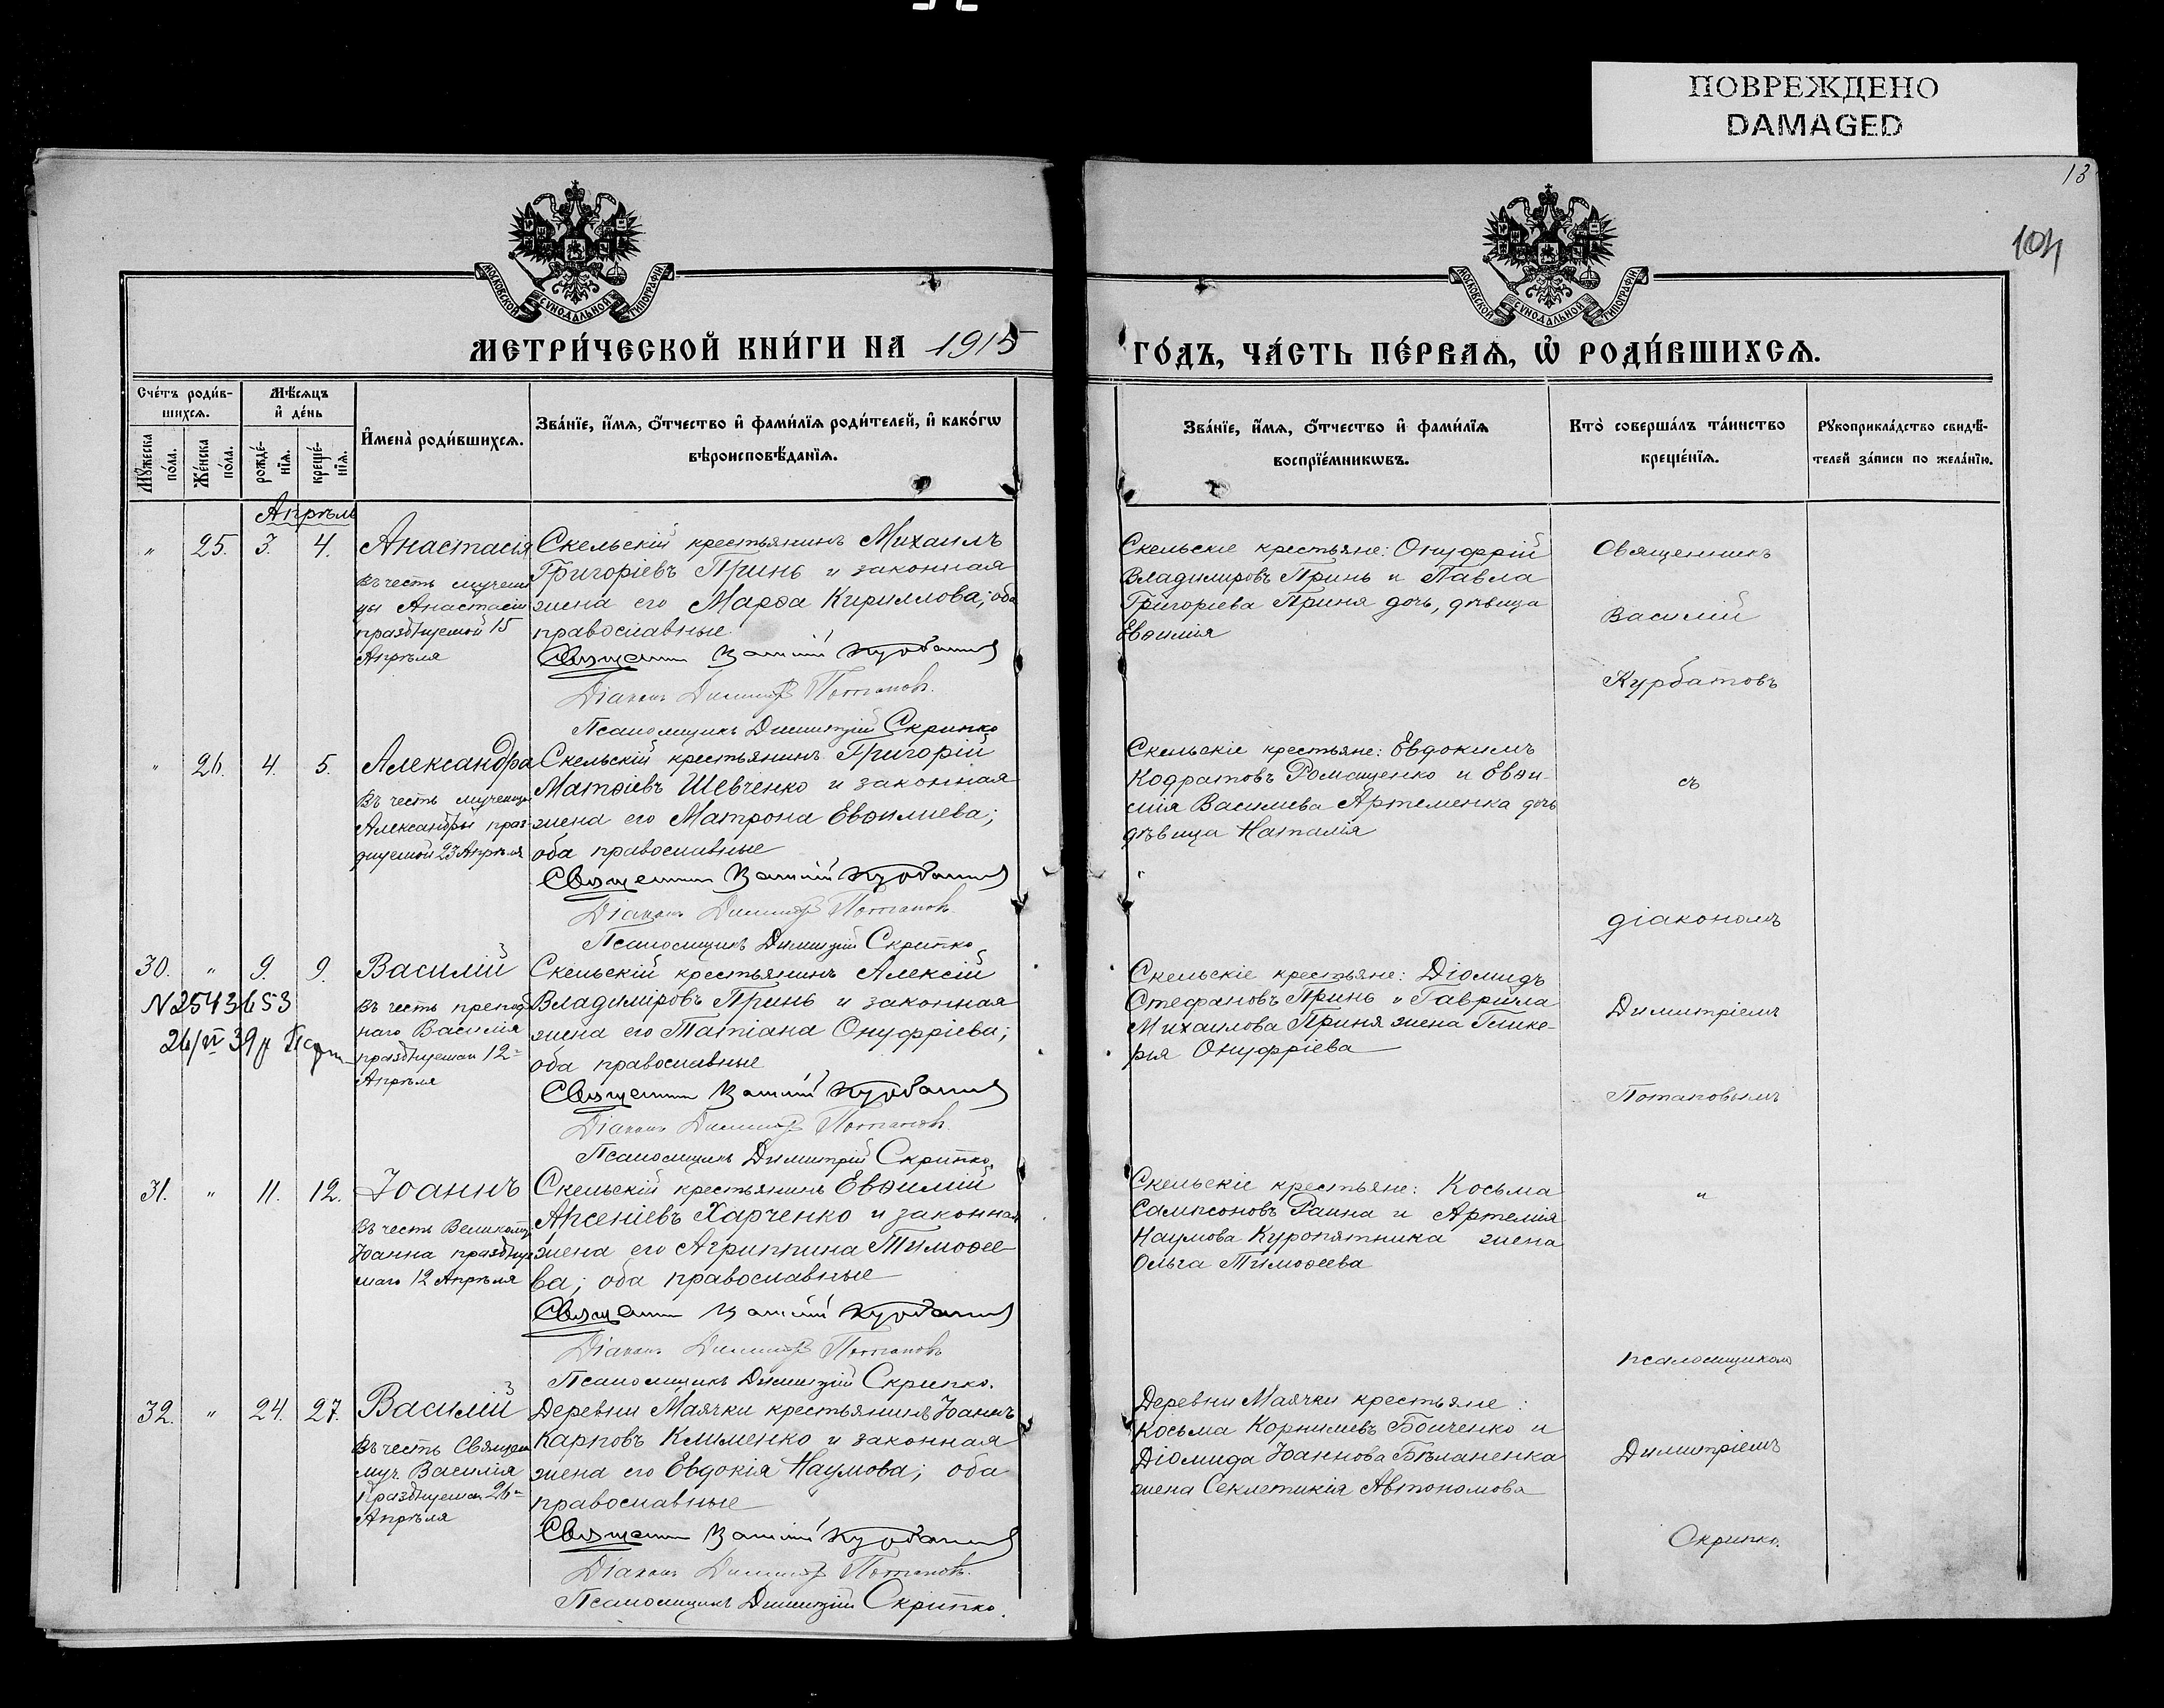 ПОВРЕЖДЕНО
DAMAGED
13
104
МОСКОВСКОЙ СѴНОДАЛЬНОЙ ТИПОГРАФІИ
МОСКОВСКОЙ СѴНОДАЛЬНОЙ ТИПОГРАФІИ
МЕТРИ́ЧЕСКОЙ КНИ́ГИ НА 1915
ГО́ДЪ, ЧА́СТЬ ПЕ́РВАѦ, Ѡ҆ РОДИ́ВШИХСѦ.
Сче́тъ роди́в-
шихсѧ.
Мꙋ́жеска по́ла.
Же́нска по́ла.
Мѣ́сѧцъ
и҆ де́нь
рожде́-
нїѧ.
креще́-
нїѧ.
И҆мена̀ роди́вшихсѧ.
Зва́нїе, и҆́мѧ, ѻ҆́тчество и҆ фами́лїѧ роди́телей, и҆ како́гѡ
вѣроисповѣ́данїѧ.
Зва́нїе, и҆́мѧ, ѻ҆́тчество и҆ фами́лїѧ
воспрїе́мникѡвъ.
Кто̀ соверша́лъ та́инство
креще́нїѧ.
Рꙋкоприкла́дство свидѣ́-
телей за́писи по жела́нїю.
Апрѣль
" 25. 3. 4.
Анастасія
въ честь мучени
цы Анастасіи
празднуемой 15
Апрѣля
Скельскій крестьянинъ Михаилъ
Григоріевъ Принь и законная
жена его Марѳа Кириллова; оба
православные
Священн Василій Курбатов
Діаконъ Димитр Потаповъ.
Псаломщикъ Димитрій Скрипко
Скельскіе крестьяне: Онуфрій
Владиміровъ Принь и Павла
Григоріева Приня дочь, дѣвица
Евѳимія
Священникъ
Василій
Курбатовъ
" 26. 4. 5.
Александра
Въ честь мученицы
Александры праз-
днуемой 23 Апрѣля
Скельскій крестьянинъ Григорій
Матѳіевъ Шевченко и законная
жена его Матрона Евѳиміева;
оба православные
Священн Василій Курбатов
Діаконъ Димитр Потаповъ.
Псаломщикъ Димитрій Скрипко
Скельскіе крестьяне: Евдокимъ
Кодратовъ Ромащенко и Евѳи-
мія Василиева Артеменка дочь
дѣвица Наталія
съ
діакономъ
30. " 9. 9.
N 2543653
26/VI 39 г
Василій
въ честь препод
наго Василія
празднуемаго 12-
Апрѣля
Скельскій крестьянинъ Алексій
Владиміровъ Принь и законная
жена его Татіана Онуфріева;
оба православные
Священн Василій Курбатов
Діаконъ Димитр Потаповъ.
Псаломщикъ Димитрій Скрипко.
Скельскіе крестьяне: Діомидъ
Стефановъ Принь и Гавріила
Михаилова Приня жена Глике-
рія Онуфріева
Димитріемъ
Потаповымъ
31. " 11. 12.
Іоаннъ
Въ честь Великому
Іоанна празднуе
маго 12 Апрѣля
Скельскій крестьянинъ Евѳимій
Арсеніевъ Харченко и законная
жена его Агриппина Тимоѳее-
ва; оба православные
Священн Василій Курбатов
Діаконъ Димитр Потаповъ
Псаломщикъ Димитрій Скрипко.
Скельскіе крестьяне: Косьма
Сампсоновъ Раина и Артемія
Наумова Куропятника жена
Ольга Тимоѳеева
"
псаломщикомъ
32. " 24. 27.
Василій
Въ честь Священ
муч. Василія
празднуемаго 26-
Апрѣля
Деревни Маячки крестьянинъ Іоаннъ
Карповъ Клименко и законная
жена его Евдокія Наумова; оба
православные
Священн Василій Курбатов
Діаконъ Димитр Потаповъ.
Псаломщикъ Димитрій Скрипко.
Деревни Маячки крестьяне:
Косьма Корниліевъ Бойченко и
Діомида Іоаннова Бѣланенка
жена Секлетикія Автономова
Димитріемъ
Скрипко.